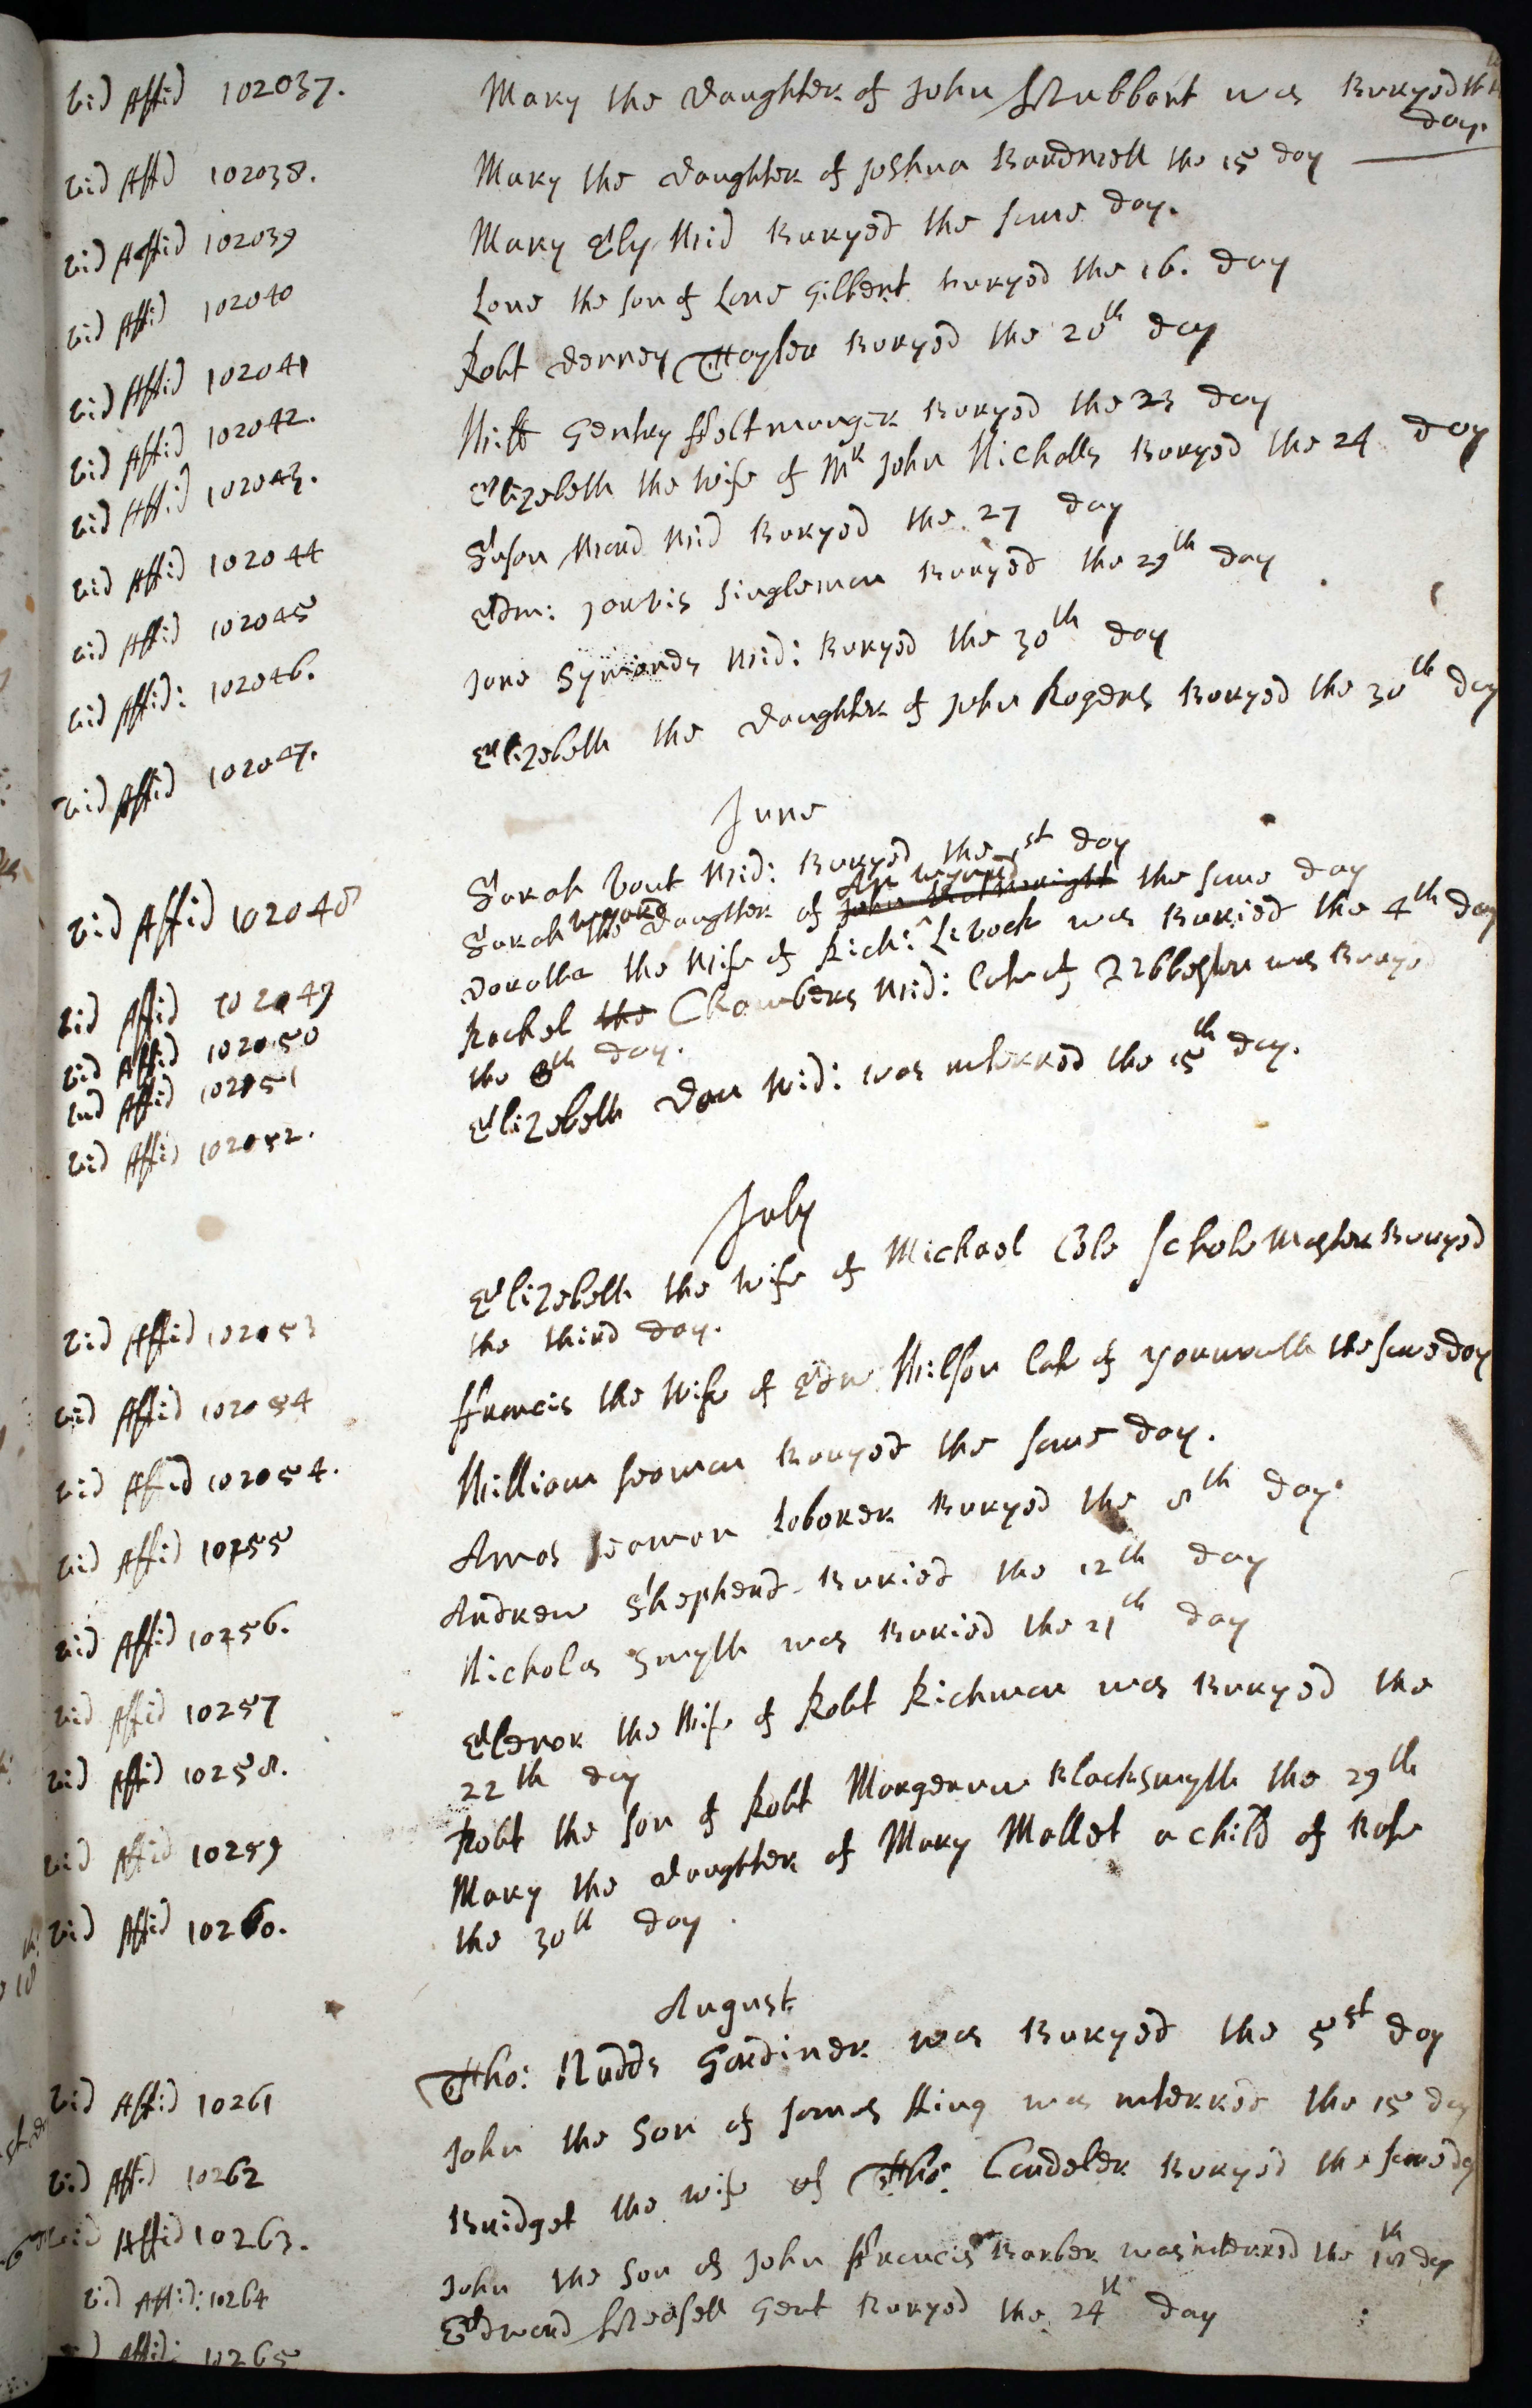 vid Affid 102037. Mary the daughter of John Stubbart was Buryed th
day.
vid Affid 102038. Mary the daughter of Joshua Bardwell the 15 day
vid Affid 102039 Mary Ely Wid Buryed the same day.
vid Affid 102040 Love the son of Love Gilbert buryed the 16. day
vid Affid 102041 Robt Denney Taylor Buryed the 20th day
vid Affid 102042. Will Gentry ffeltmonger Buryed the 23 day
vid Affid 102043. Elizebeth the wife of Mr John Nicholls Buryed the 24 day
vid Affid 102044 Susan Ward Wid Buryed the 27 day
vid Affid 102045 Edm: Jarvis singleman Buryed the 29th day
vid Affid: 102046. Jone Symonds Wid: Buryed the 30th day
vid Affid 102047. Elizebeth the daughter of John Rogers Buryed the 30th day
June
vid Affid 102048 Sarah Vout Wid: Buryed the 1st day
vid Affid 102049 Sarah the daughter of the same day
vid Affid 102050 Dorothe the Wife of Rich: Livock was Buried the 4th day
vid Affid 102051 Rachel the Chambers Wid: late of was Buryed
the 8th day.
vid Affid 102052. Elizebeth Dan Wid: was interred the 15th day.
July
vid Affid 102053 Elizebeth the wife of Michael Cole Schole Master Buryed
the third day.
vid Affid 102054 ffrancis the Wife of Edw Wilson late of Yarmouth the same day
vid Affid 102054. William seaman Buryed the same day.
vid Affid 10255 Amos seaman Laborer Buryed the 8th day.
vid Affid 10256. Andrew Shepherd Buried the 12th day
vid Affid 10257 Nicholas Smyth was Buried the 21th day
vid Affid 10258. Elenor the Wife of Robt Richman was Buryed the
22th day
vid Affid 10259 Robt the son of Robt Blacksmyth the 29th
vid Affid 10260. Mary the daughter of Mary Mallet a child of Base
the 30th day.
August
vid Affid 10261 Tho: Nudds Gardiner was Buryed the 5st day
vid Affid 10262 John the Son of James King was interred the 15 day
vid Affid 10263. Bridget the wife of Tho: Candeler Buryed the same day
vid Affid: 10264 John the Son of John ffrancis Barber was interred the 18th day
Affid: 10265 Edward Gent Buryed the 24th day